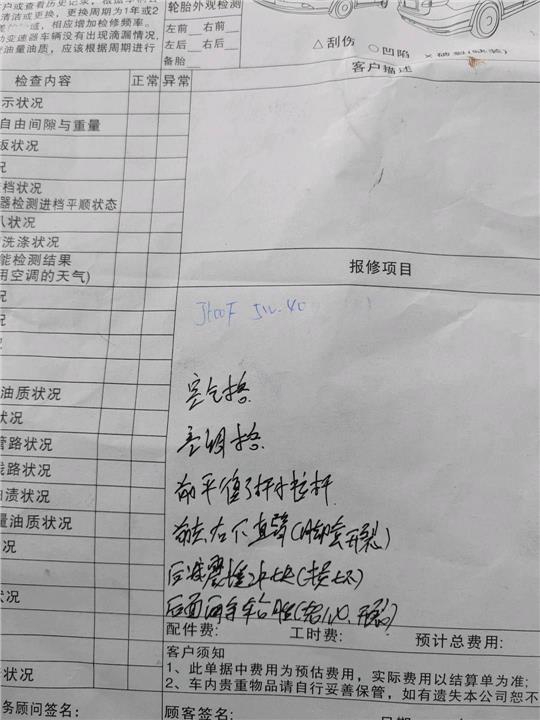 户或查看历史记录，根据
清洁或更换，更换周期为1年或2
相应增加检修频率。
变速器车辆没有出现滴漏情况，
油量油质，应该根据周期进行
轮胎外观检测
左前 右前
左后 右后
备胎
△刮伤 ○凹陷
客户描述
检查内容 正常 异常
示状况
自由间隙与重量
板状况
况
档状况
器检测进档平顺状态
八状况
洗涤状况
能检测结果
用空调的天气)
报修项目
况
况
5W-40
油质状况
空气格
状况
空调格
管路状况
线路状况
前平衡杆小拉杆
油渍状况
量油质状况
前左右下直臂(胶套开裂)
况
后减震
状况
后面两条轮胎(开裂)
配件费: 工时费: 预计总费用:
客户须知
1、此单据中费用为预估费用，实际费用以结算单为准;
2、车内贵重物品请自行妥善保管，如有遗失本公司恕不
状况
务顾问签名: 顾客签名: